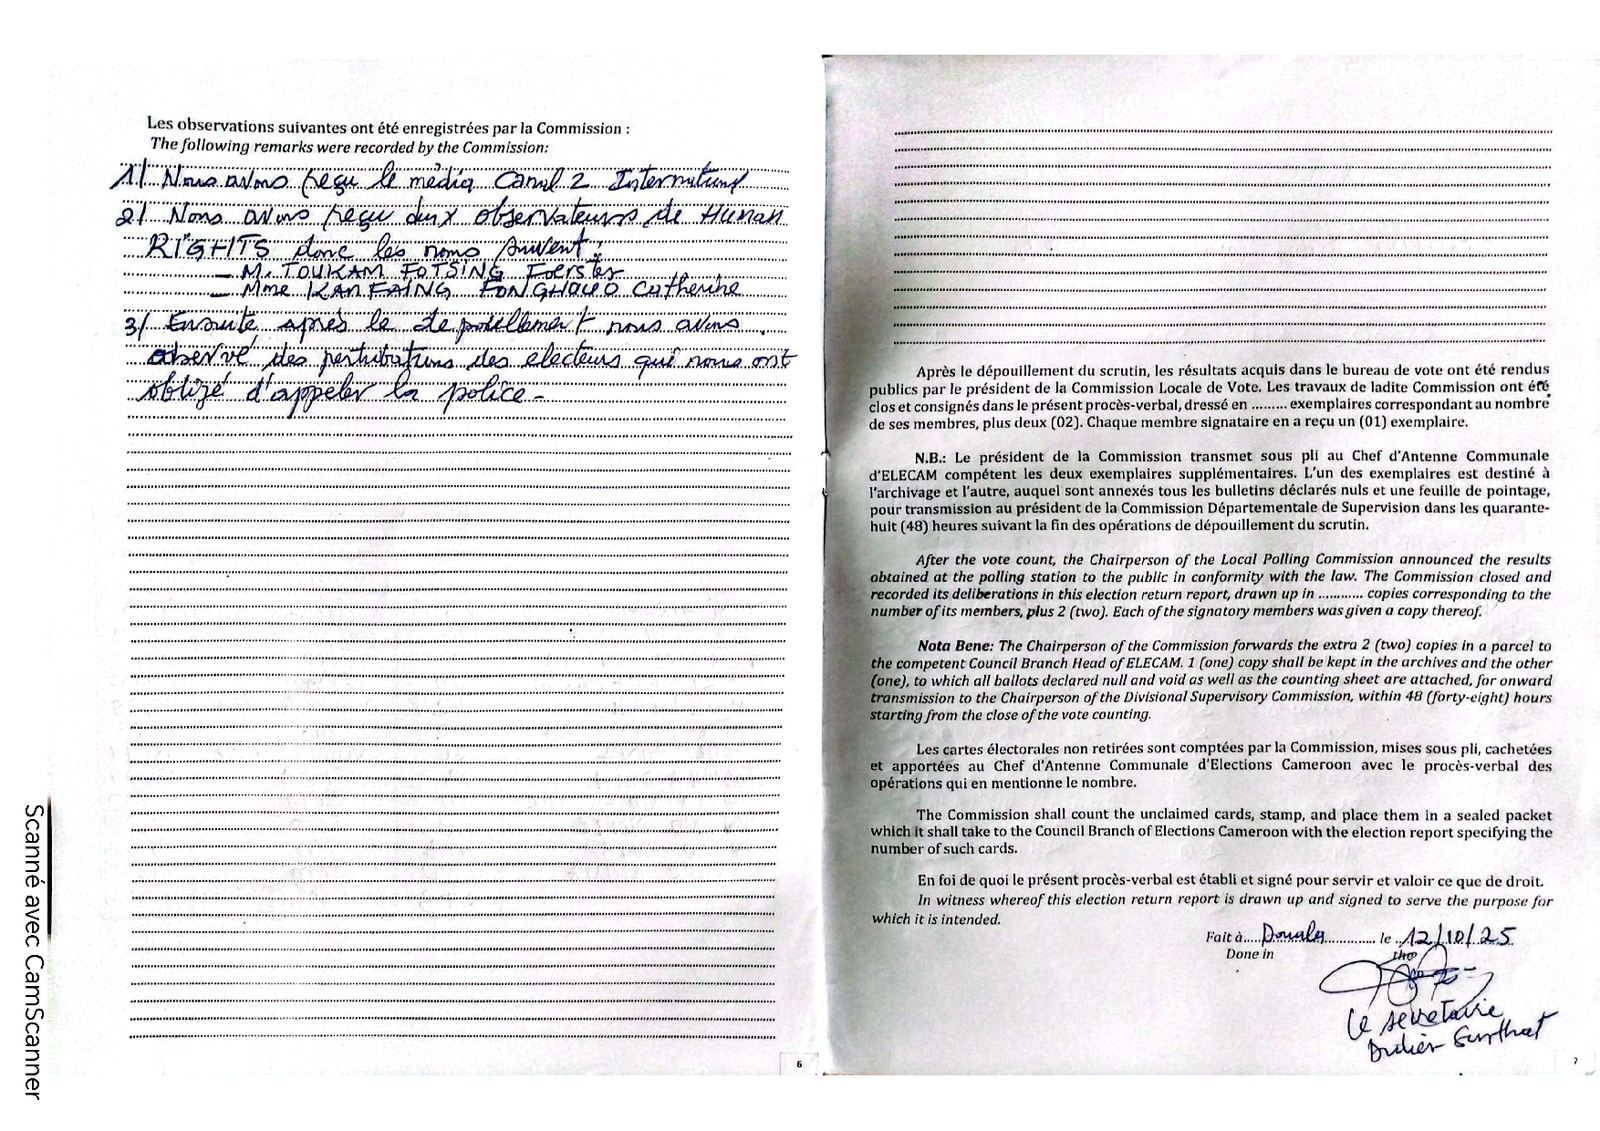 Les observations suivantes ont été enregistrées par la Commission :
The following remarks were recorded by the Commission:
1/ Nous avons reçu le média Canal 2 International
2/ Nous avons reçu deux observateurs de Human
RIGHTS donc les noms suivent :
- M. TOUKAM FOTSING Foerster
- Mme KAMFAING Catherine
3/ Ensuite après le depouillement nous avons
observé des pertubations des electeurs qui nous ont
obligé d'appeler la police -
6
Après le dépouillement du scrutin, les résultats acquis dans le bureau de vote ont été rendus
publics par le président de la Commission Locale de Vote. Les travaux de ladite Commission ont été
clos et consignés dans le présent procès-verbal, dressé en ......... exemplaires correspondant au nombre
de ses membres, plus deux (02). Chaque membre signataire en a reçu un (01) exemplaire.
N.B.: Le président de la Commission transmet sous pli au Chef d'Antenne Communale
d'ELECAM compétent les deux exemplaires supplémentaires. L'un des exemplaires est destiné à
l'archivage et l'autre, auquel sont annexés tous les bulletins déclarés nuls et une feuille de pointage,
pour transmission au président de la Commission Départementale de Supervision dans les quarante-
huit (48) heures suivant la fin des opérations de dépouillement du scrutin.
After the vote count, the Chairperson of the Local Polling Commission announced the results
obtained at the polling station to the public in conformity with the law. The Commission closed and
recorded its deliberations in this election return report, drawn up in ........... copies corresponding to the
number of its members, plus 2 (two). Each of the signatory members was given a copy thereof.
Nota Bene: The Chairperson of the Commission forwards the extra 2 (two) copies in a parcel to
the competent Council Branch Head of ELECAM. 1 (one) copy shall be kept in the archives and the other
(one), to which all ballots declared null and void as well as the counting sheet are attached, for onward
transmission to the Chairperson of the Divisional Supervisory Commission, within 48 (forty-eight) hours
starting from the close of the vote counting.
Les cartes électorales non retirées sont comptées par la Commission, mises sous pli, cachetées
et apportées au Chef d'Antenne Communale d'Elections Cameroon avec le procès-verbal des
opérations qui en mentionne le nombre.
The Commission shall count the unclaimed cards, stamp, and place them in a sealed packet
which it shall take to the Council Branch of Elections Cameroon with the election report specifying the
number of such cards.
En foi de quoi le présent procès-verbal est établi et signé pour servir et valoir ce que de droit.
In witness whereof this election return report is drawn up and signed to serve the purpose for
which it is intended.
Fait à Douala le 12/10/25
Done in the
Le secretaire
Didier
7
Scanné avec CamScanner